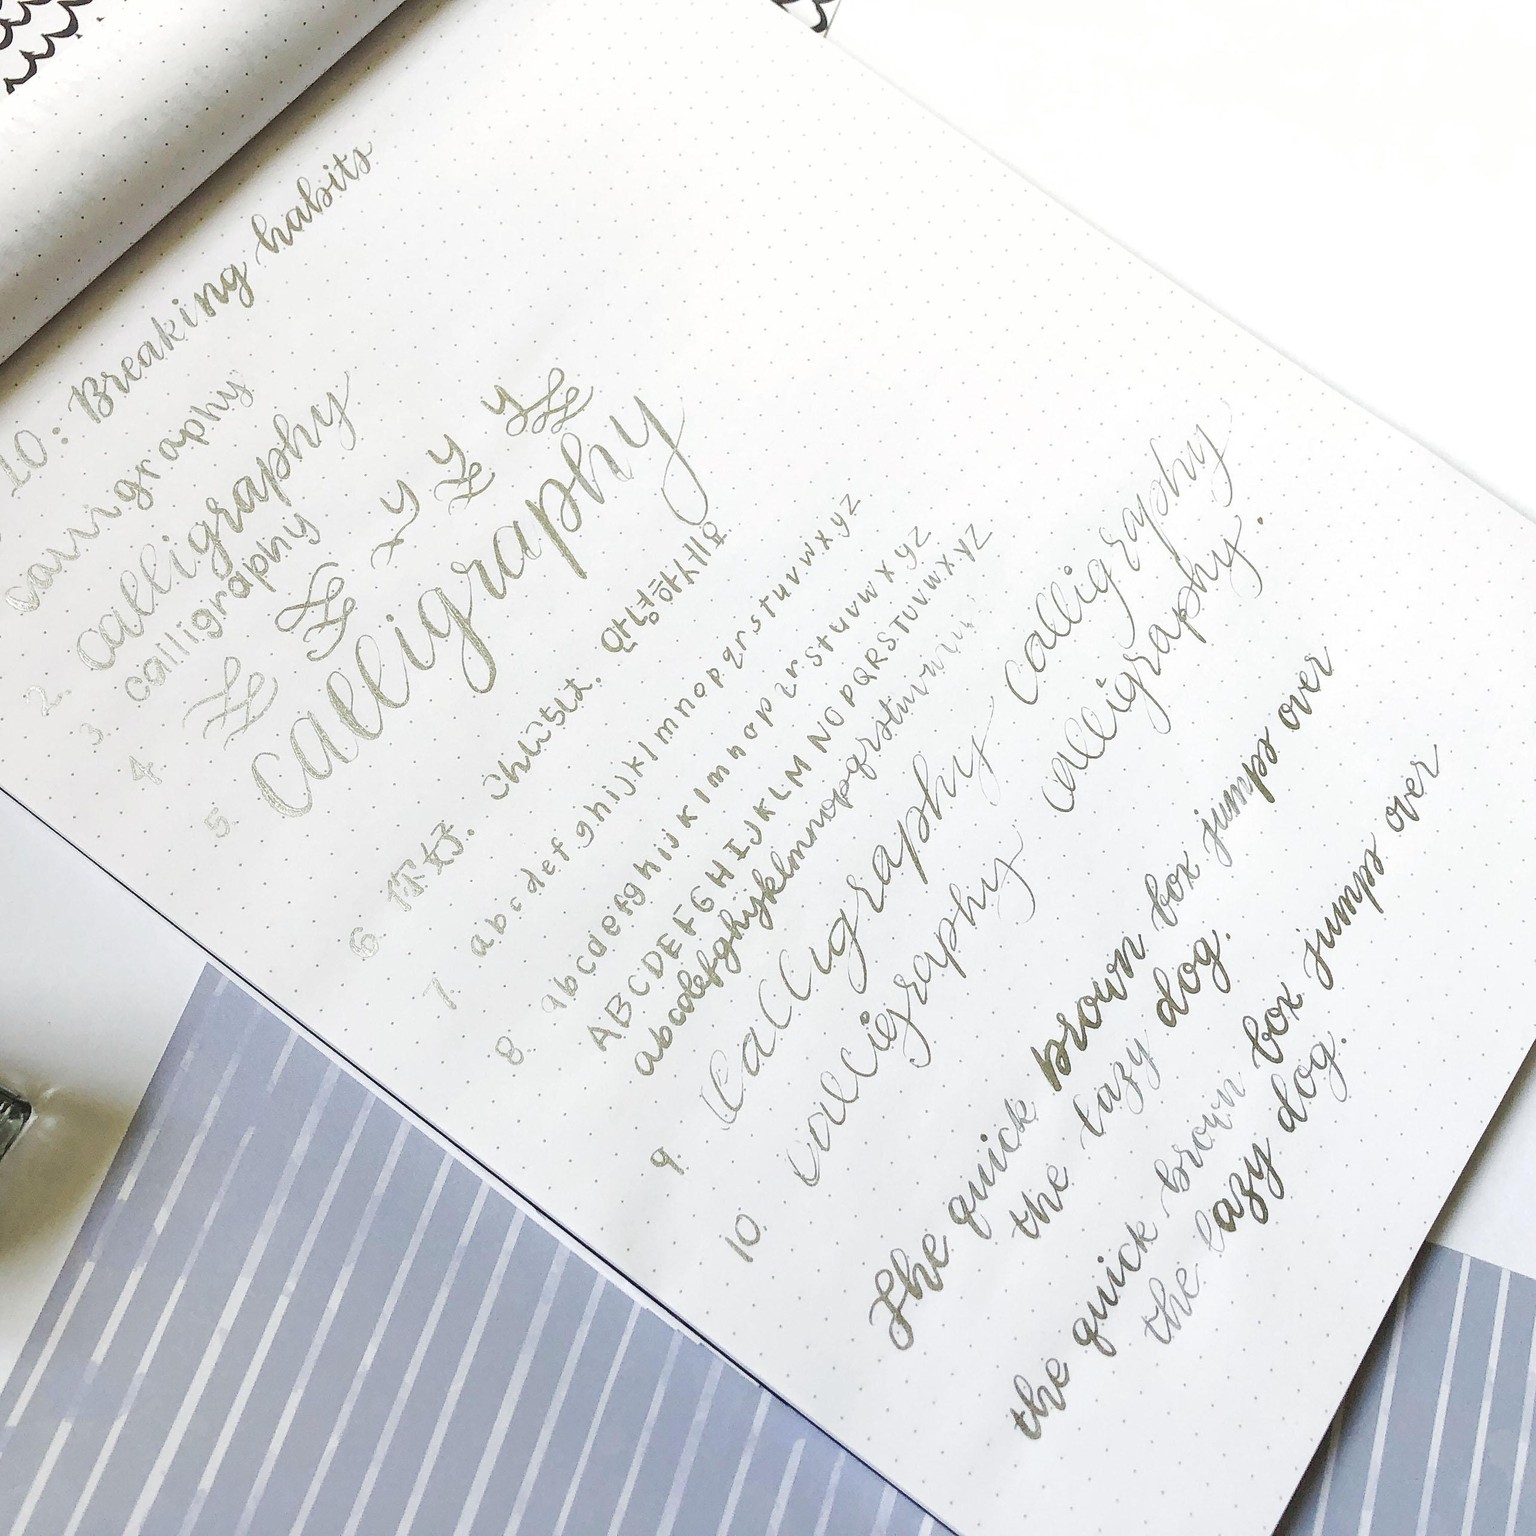 10: Breaking habits
calligraphy
2. calligraphy
3. calligraphy
4. y y y
5. calligraphy
6. 你好. 안녕하세요
7. a b c d e f g h i j k l m n o p q r s t u v w x y z
8. a b c d e f g h i j k l m n o p q r s t u v w x y z
A B C D E F G H I J K L M N O P Q R S T U V W X Y Z
abcdefghijklmnopqrstuvw
9. calligraphy calligraphy
10. calligraphy calligraphy.
The quick brown fox jumps over
the lazy dog.
the quick brown fox jumps over
the lazy dog.